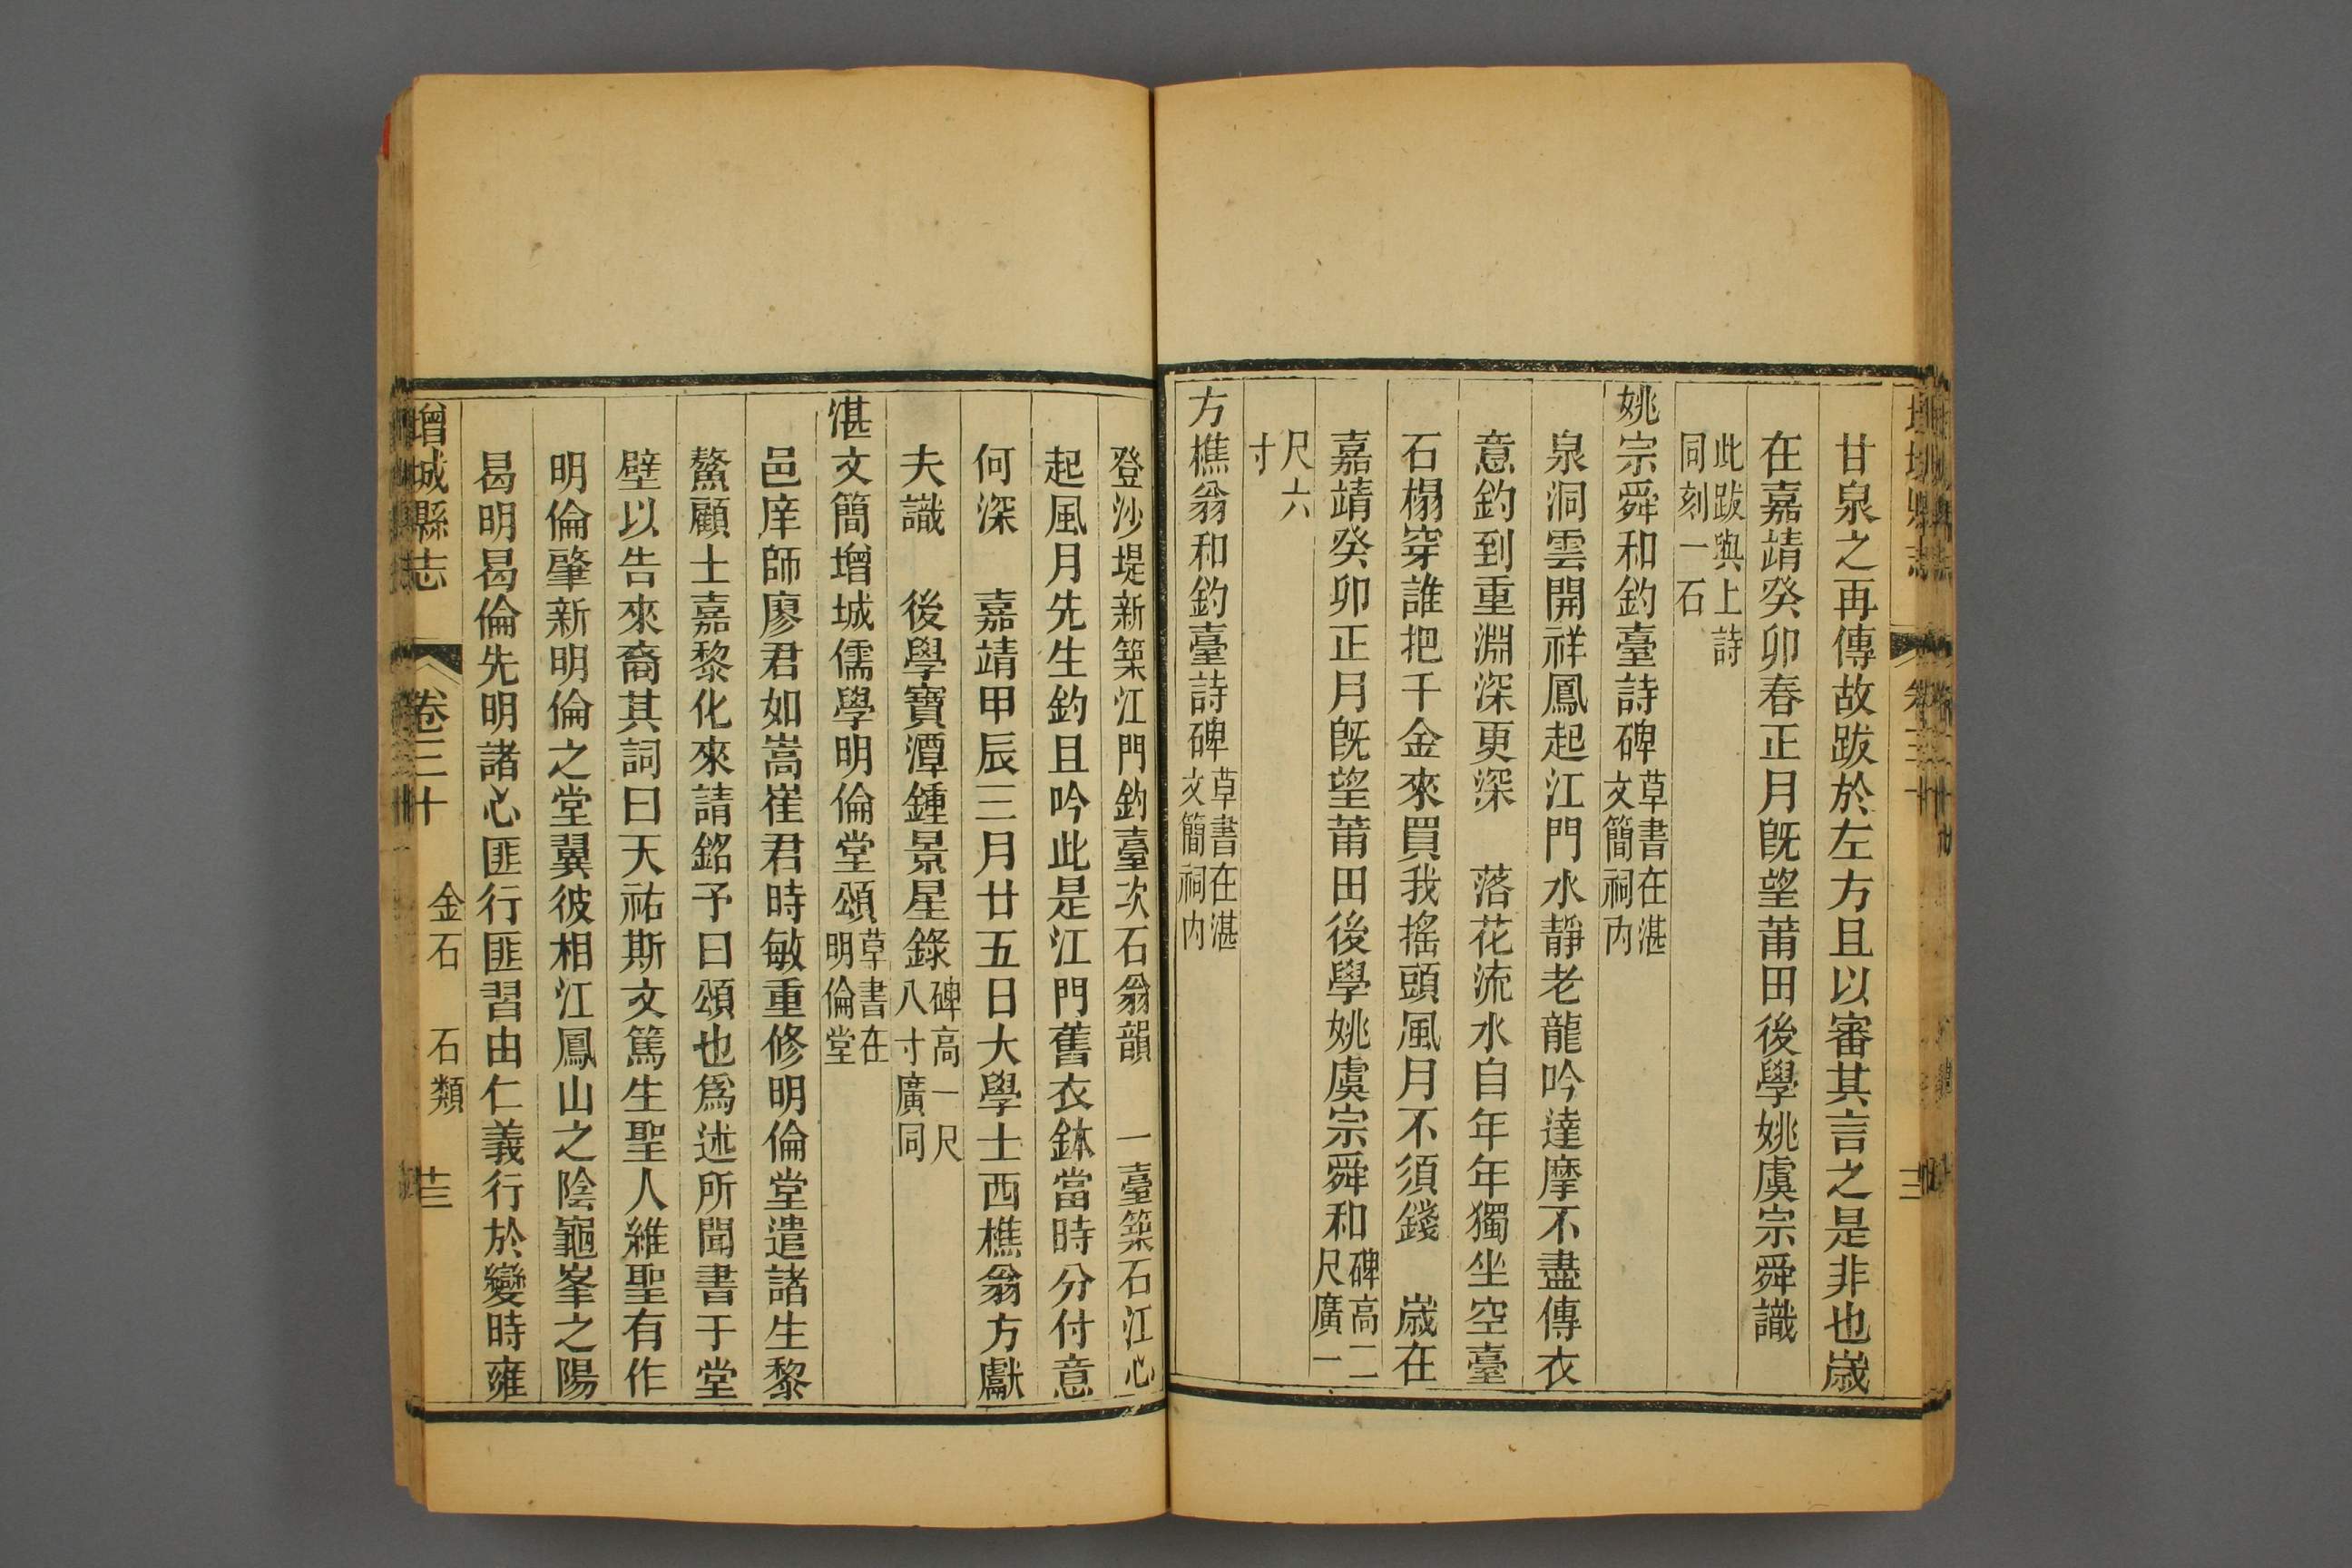 甘泉之再傳故跋於左方且以審其言之是非也嵗
在嘉靖癸卯春正月旣望莆田後學姚虞宗舜識
此跋與上詩
同刻一石
姚宗舜和釣臺詩碑草書在湛
文簡祠內
泉洞雲開祥鳳起江門水靜老龍吟達摩不盡傳衣
意釣到重淵深更深　落花流水自年年獨坐空臺
石榻穿誰把千金來買我搖頭風月不須錢　嵗在
嘉靖癸卯正月旣望莆田後學姚虞宗舜和碑高二
尺廣一
尺六
寸
方樵翁和釣臺詩碑草書在湛
文簡祠內
登沙堤新築江門釣臺次石翁韻　一臺築石江心
起風月先生釣且吟此是江門舊衣鉢當時分付意
何深　嘉靖甲辰三月廿五日大學士西樵翁方獻
夫識　後學寶潭鍾景星錄碑高一尺
八寸廣同
湛文簡增城儒學明倫堂頌草書在
明倫堂
邑庠師廖君如嵩崔君時敏重修明倫堂遣諸生黎
鰲顧士嘉黎化來請銘予曰頌也爲述所聞書于堂
壁以告來裔其詞曰天祐斯文篤生聖人維聖有作
明倫肇新明倫之堂翼彼相江鳳山之陰龜峯之陽
曷明曷倫先明諸心匪行匪習由仁義行於變時雍
增城縣志　卷三十　金石　石類　廿三